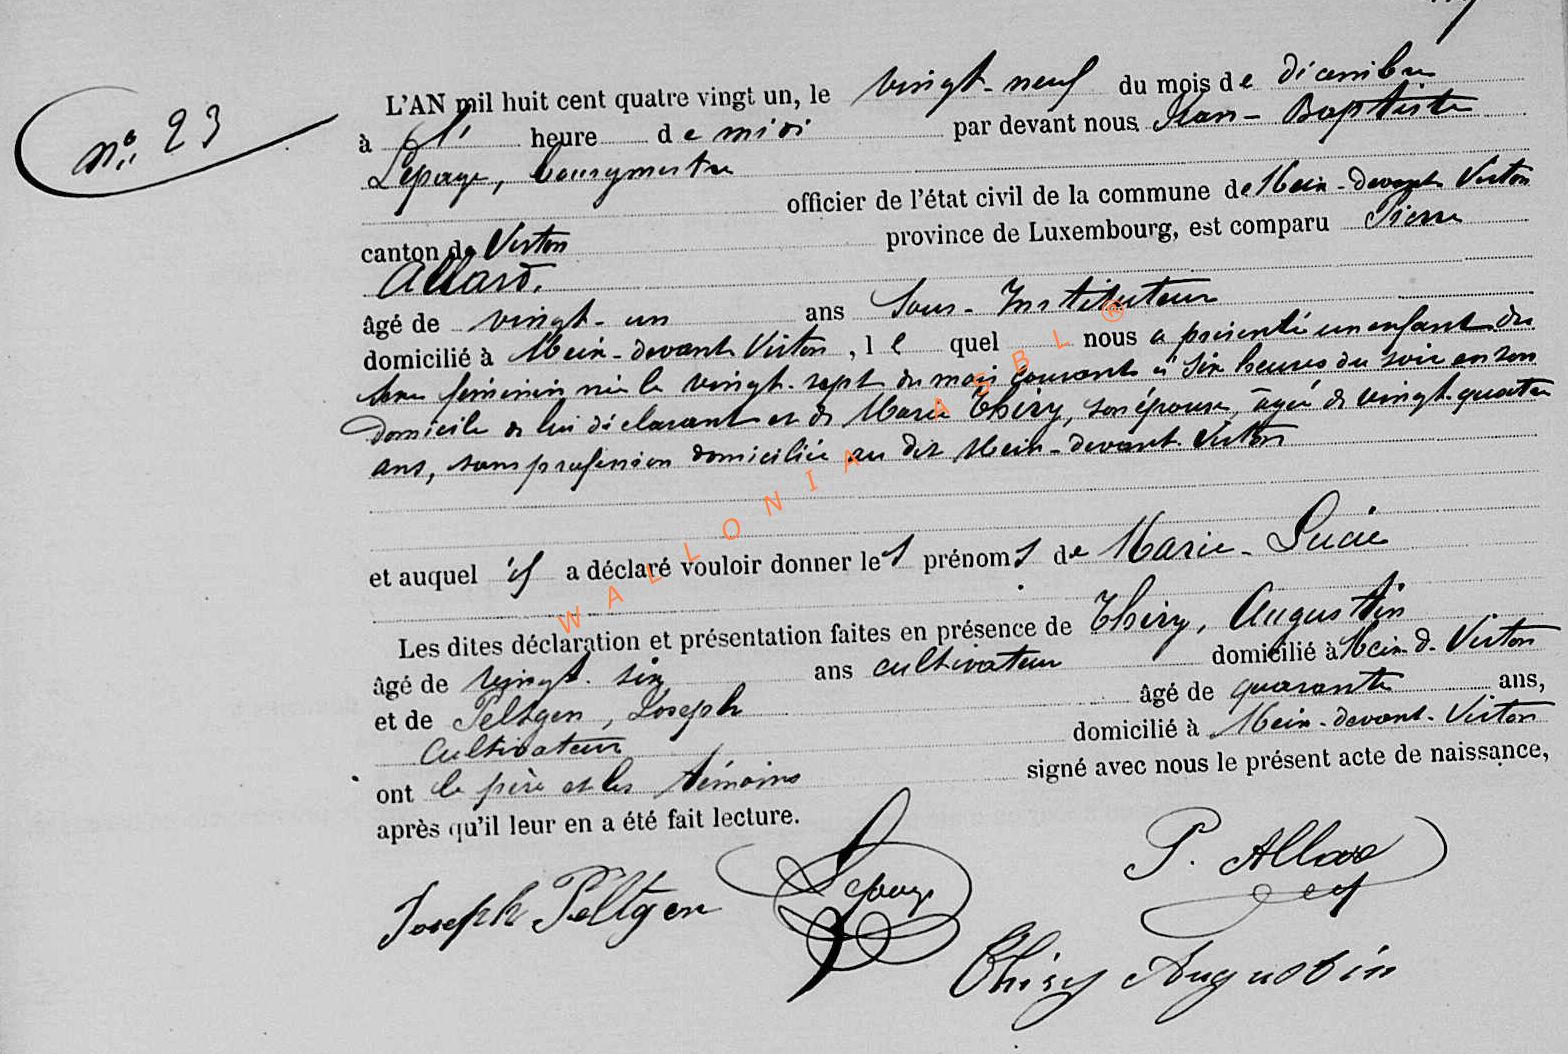 n° 23
L'AN mil huit cent quatre vingt un, le vingt-neuf du mois de décembre
à heure de midi par devant nous Jean-Baptiste
Lepage, bourgmestre
officier de l'état civil de la commune de Meix-devant Virton
canton de Virton province de Luxembourg, est comparu Pierre
Allard.
âgé de vingt-un ans Sous-Instituteur
domicilié à Meix-devant Virton, le quel nous a présenté un enfant du
sexe féminin née le vingt-sept du mois courant à six heures du soir en son
domicile de lui déclarant et de Marie Thiry, son épouse, âgée de vingt-quatre
ans, sans profession domiciliée au dit Meix-devant-Virton
et auquel il a déclaré vouloir donner les prénoms de Marie-Lucie
Les dites déclaration et présentation faites en présence de Thiry, Augustin
âgé de vingt-six ans cultivateur domicilié à Meix-d-Virton
et de Peltgen, Joseph âgé de quarante ans,
Cultivateur domicilié à Meix-devant-Virton
ont le père et les témoins signé avec nous le présent acte de naissance,
après qu'il leur en a été fait lecture.
P. Allard
Joseph Peltgen Lepage
Thiry Augustin
WALLONIA ASBL ®